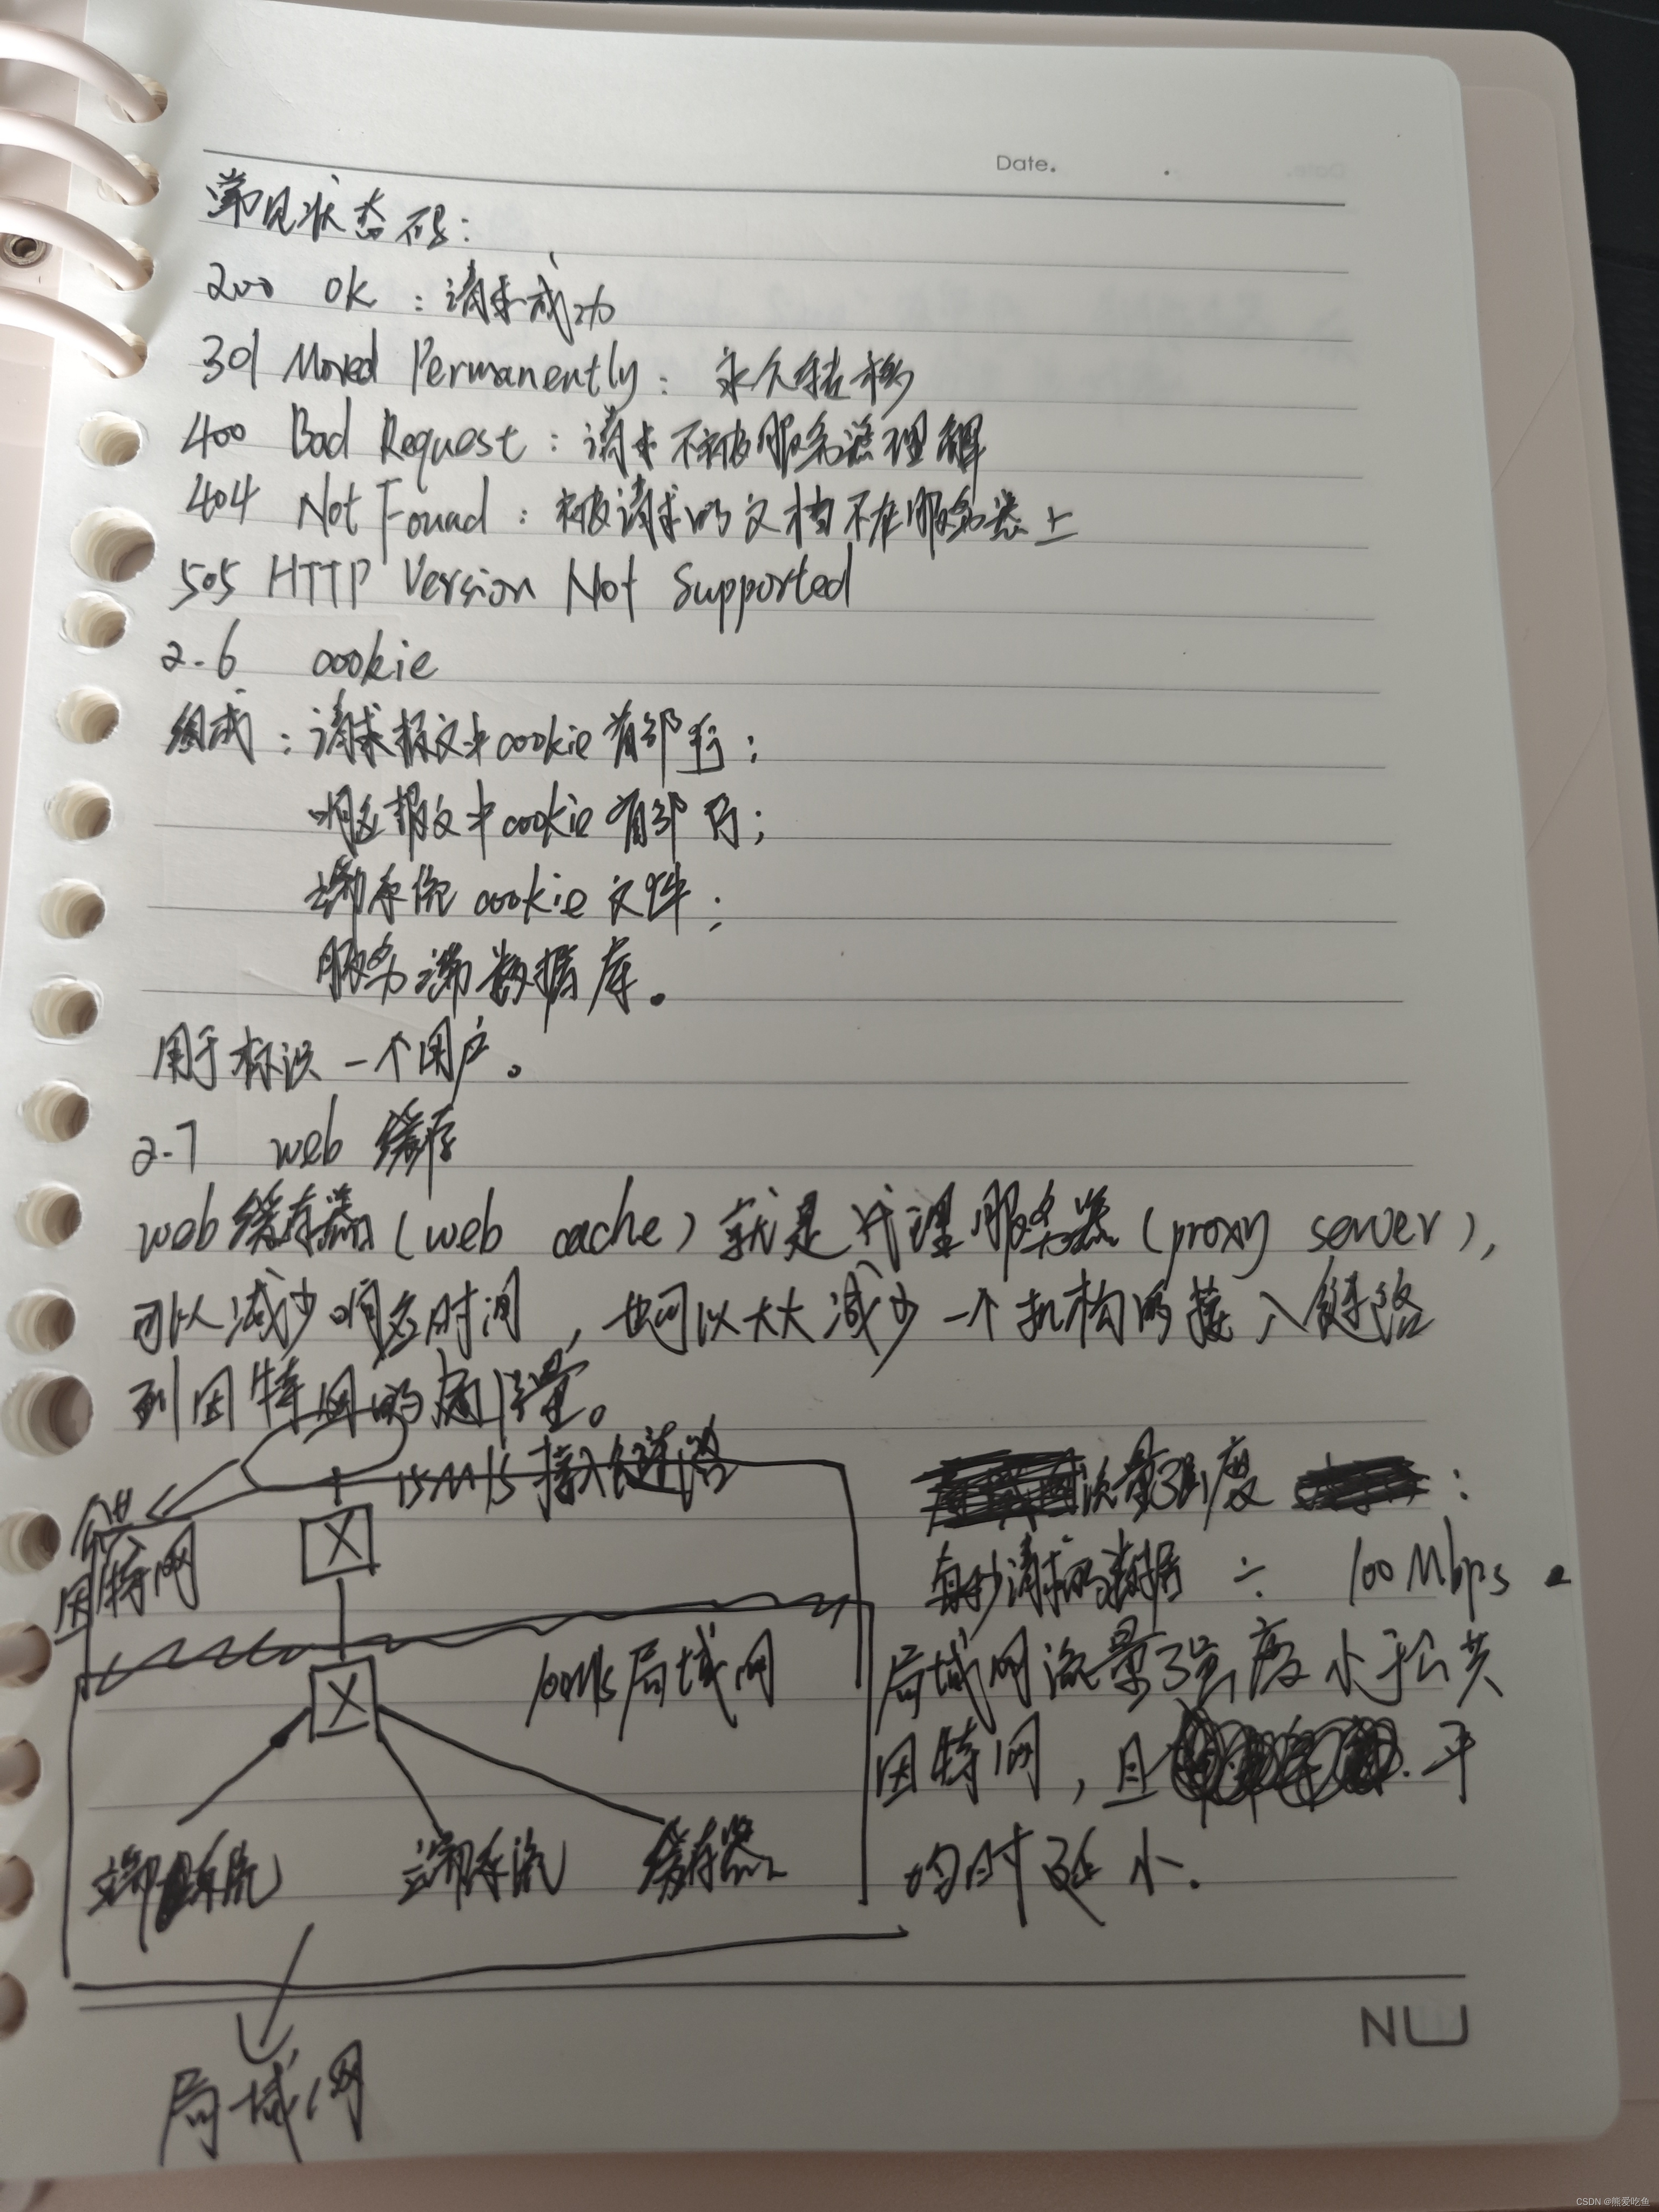 Date.
常见状态码：
200 OK：请求成功
301 Moved Permanently：永久转移
400 Bad Request：请求不被服务器理解
404 Not Found：被请求的文档不在服务器上
505 HTTP Version Not Supported
2.6 cookie
组成：请求报文中cookie首部行；
响应报文中cookie首部行；
端系统cookie文件；
服务端数据库。
用于标识一个用户。
2.7 web缓存
web缓存器(web cache)就是代理服务器(proxy server),
可以减少响应时间，也可以大大减少一个机构的接入链路
到因特网的通信量。
15M/s接入链路
因特网
100M/s局域网
端系统 端系统 缓存器
局域网
流量强度：
每秒请求的数据 ÷ 100Mbps.
局域网流量强度小于公共
因特网，且平
均时延小.
NU
CSDN @熊爱吃鱼